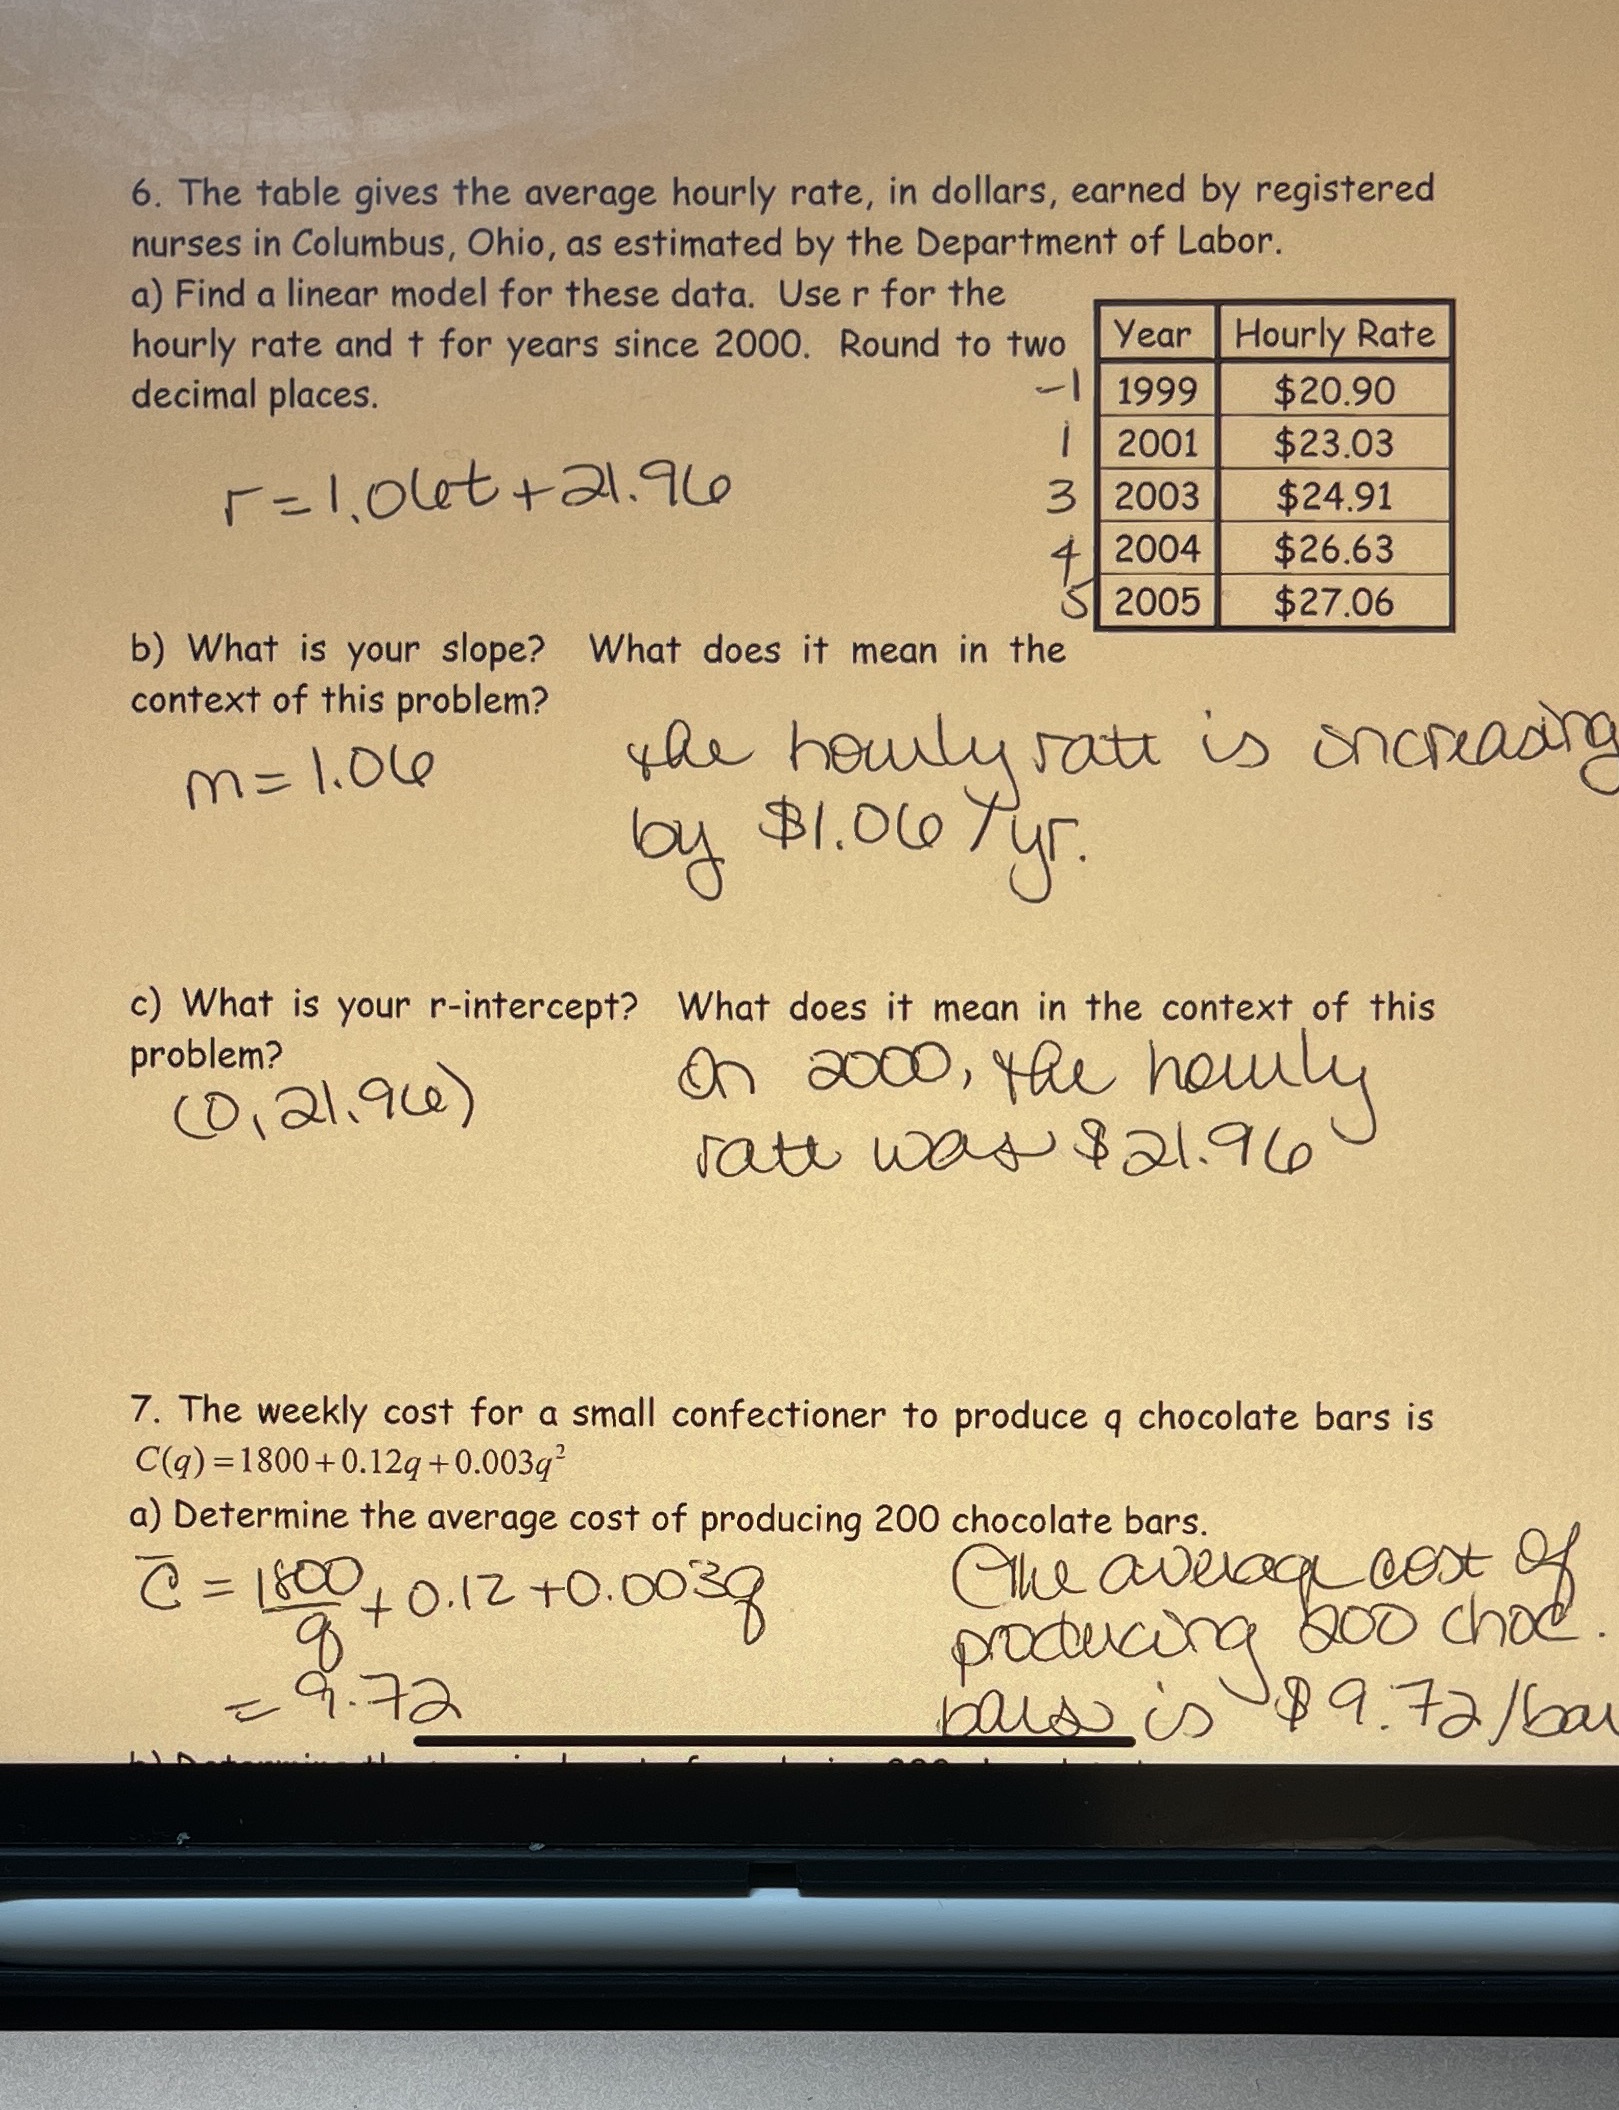 6. The table gives the average hourly rate, in dollars, earned by registered
nurses in Columbus, Ohio, as estimated by the Department of Labor.
a) Find a linear model for these data. Use r for the
hourly rate and t for years since 2000. Round to two
decimal places.
r = 1.06t + 21.96
Year Hourly Rate
-1 1999 $20.90
1 2001 $23.03
3 2003 $24.91
4 2004 $26.63
5 2005 $27.06
b) What is your slope? What does it mean in the
context of this problem?
m = 1.06
the hourly rate is increasing
by $1.06 / yr.
c) What is your r-intercept? What does it mean in the context of this
problem?
(0, 21.96)
In 2000, the hourly
rate was $21.96
7. The weekly cost for a small confectioner to produce q chocolate bars is
C(q) = 1800 + 0.12q + 0.003q²
a) Determine the average cost of producing 200 chocolate bars.
C̅ = 1800/q + 0.12 + 0.003q
= 9.72
The average cost of
producing 200 choc.
bars is $9.72/bar